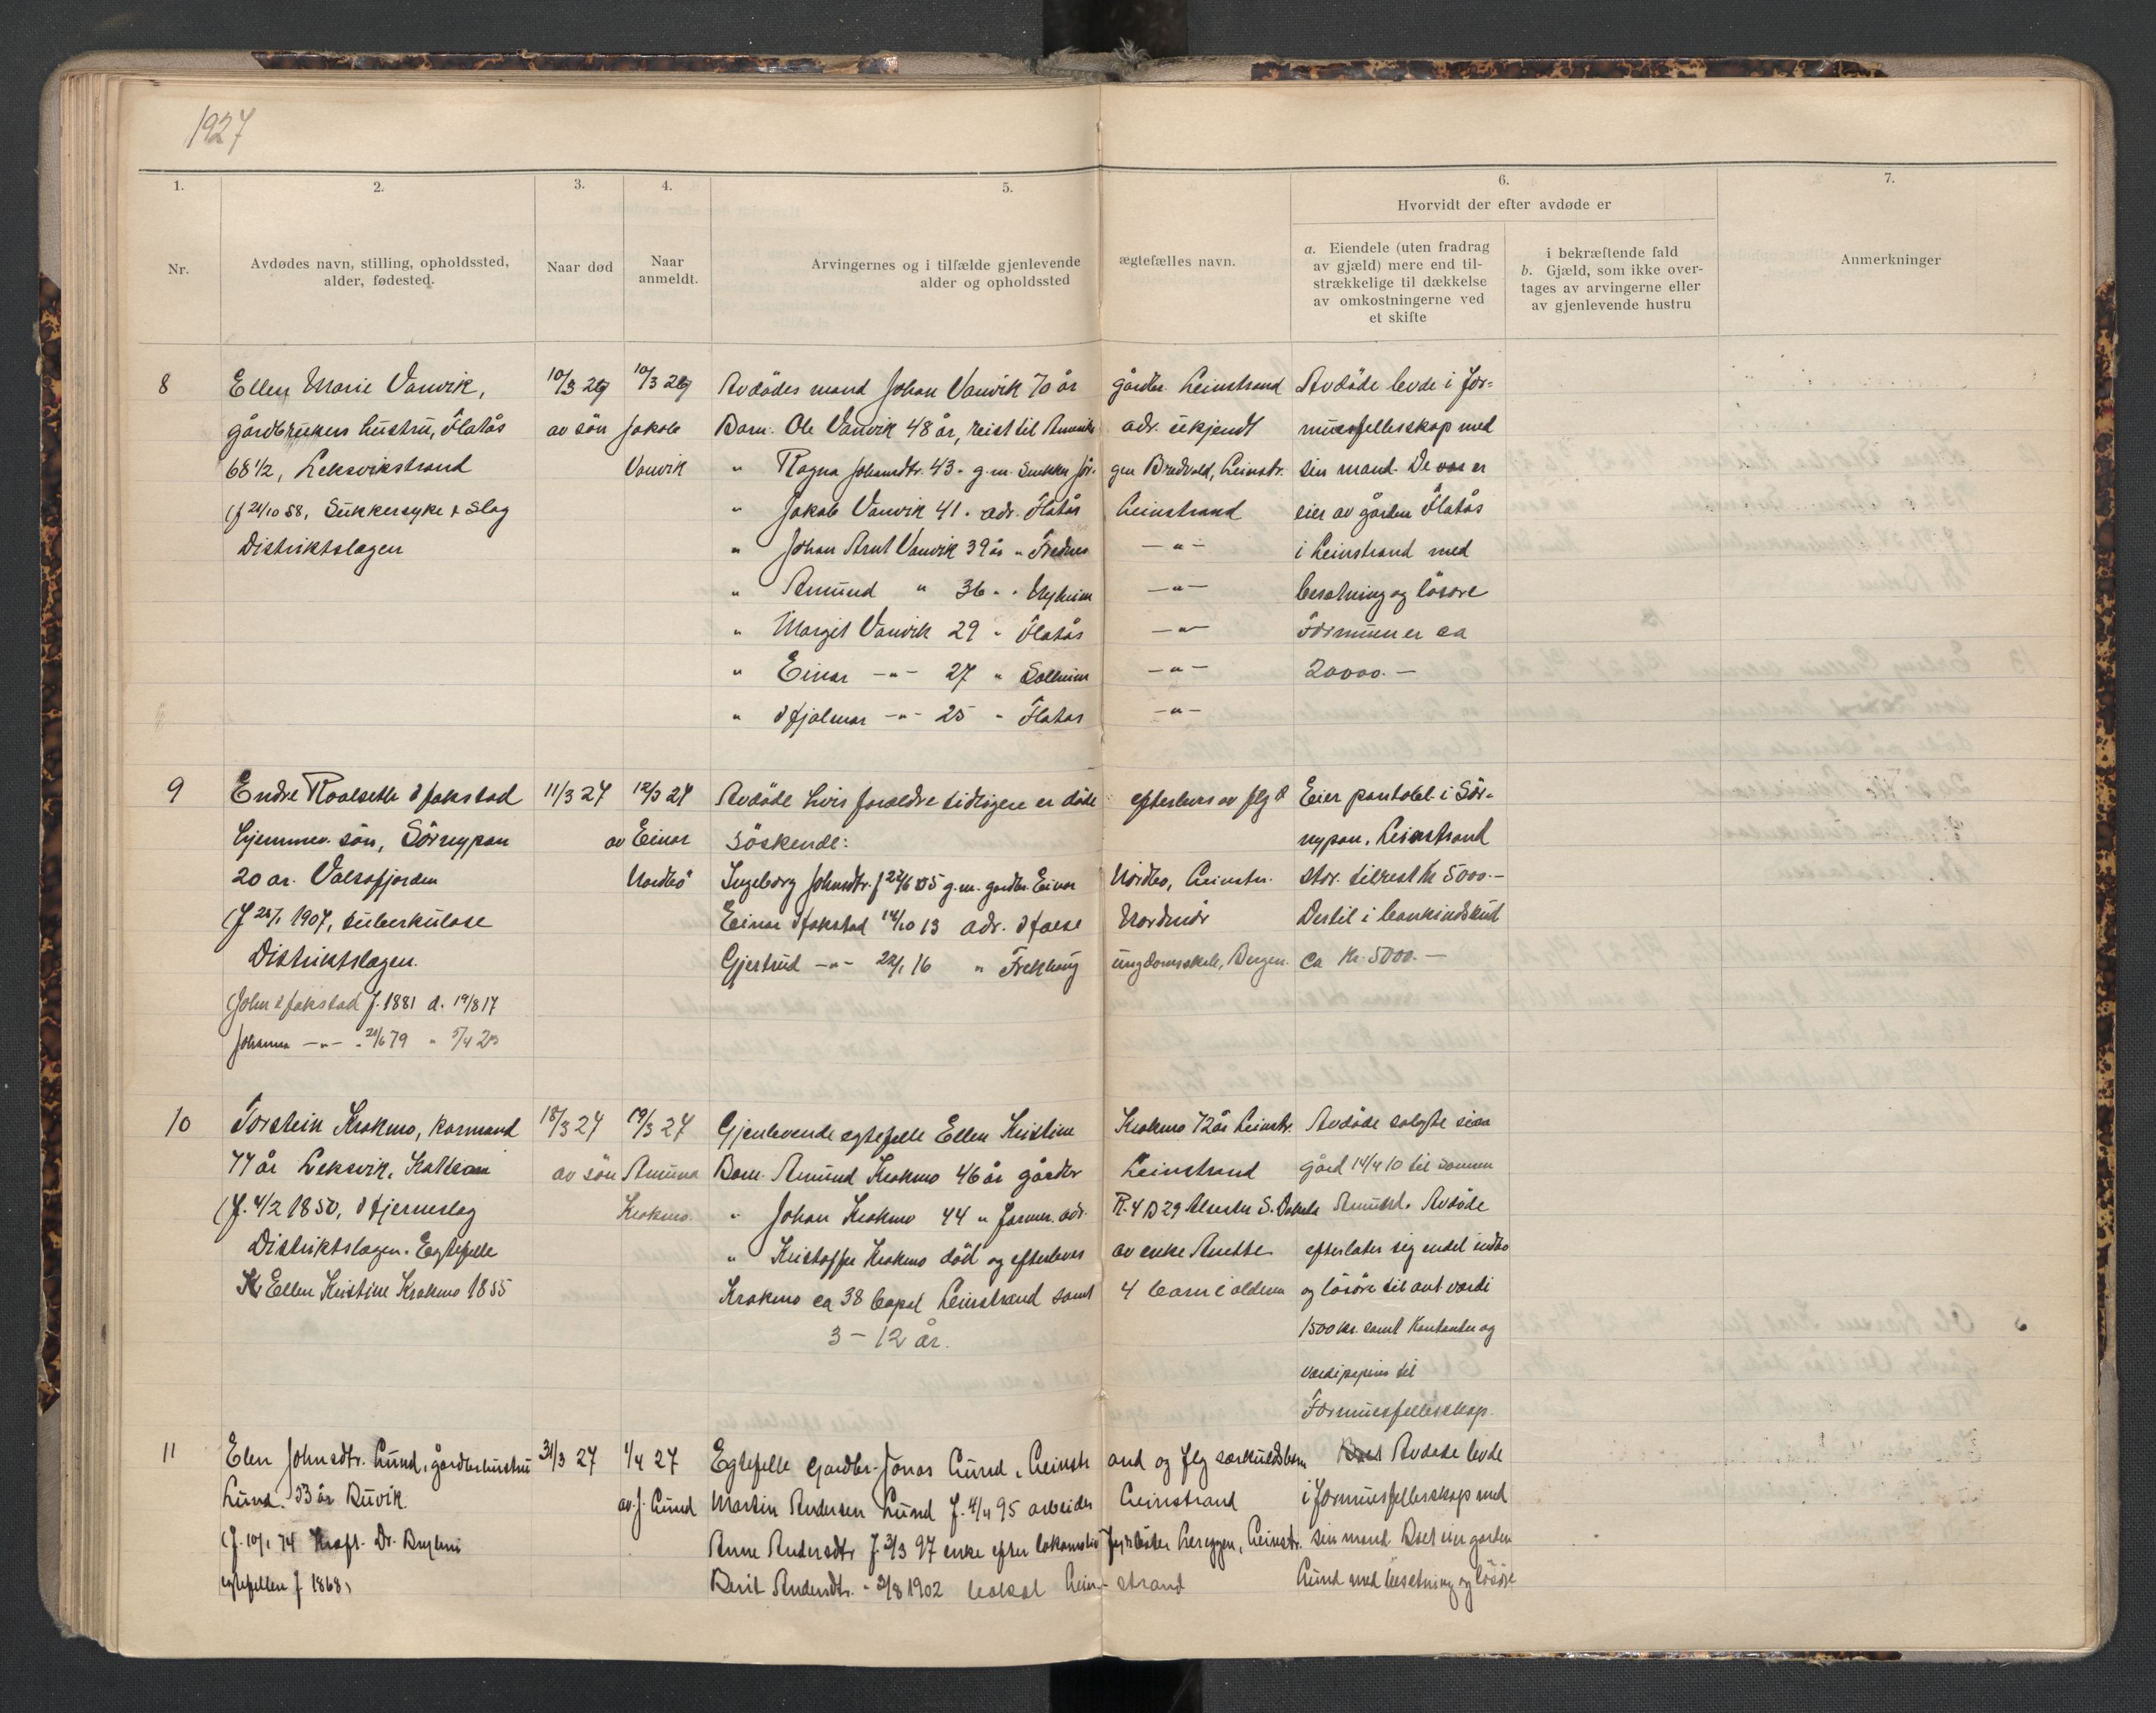 1927
1. 2. 3. 4. 5. 6. 7.
Hvorvidt der efter avdøde er
Nr.
Avdødes navn, stilling, opholdssted,
alder, fødested.
Naar død
Naar
anmeldt.
Arvingernes og i tilfælde gjenlevende ægtefælles navn.
alder og opholdssted
a. Eiendele (uten fradrag
av gjæld) mere end til-
strækkelige til dækkelse
av omkostningerne ved
et skifte
i bekræftende fald
b. Gjæld, som ikke over-
tages av arvingerne eller
av gjenlevende hustru
Anmerkninger
8 Ellen Marie Vanvik, 10/3 27 10/3 27 Avdødes mand Johan Vanvik 70 år gårdbr. Leinstrand Avdøde levde i for-
gårdbrukers hustru, Flatås av søn Jakob Barn: Ole Vanvik 48 år, reist til Amerika adr. ukjendt muesfellesskap med
68 1/2, Leksvikstrand Vanvik " Ragna Johansdtr. 43 " g.m. Snekker Jør- gen Bredvold, Leinstr. sin mand. De er
(f 21/10 58, Sukkersyke & Slag " Jakob Vanvik 41 " adr. Flatås Leinstrand eier av gården Flatås
Distriktslægen " Johan Arnt Vanvik 39 år " Frednes -"- i Leinstrand med
" Amund " 36 " " Nyheim -"- besetning og løsøre
" Margit Vanvik 29 " Flatås -"- Formuen er ca
" Einar -"- 27 " Solheim -"- 20000.-
" Hjalmar -"- 25 " Flatås -"-
9 Endre Roalseth Hakstad 11/3 27 12/3 27 Avdøde hvis forældre tidligere er døde efterleves av flg Eier pantobl. i Sør-
hjemmev. søn, Sørnypan av Einar Søskende: nypan, Leinstrand
20 år. Valsøfjorden Nordbø Ingeborg Johnsdtr. f 22/6 05 g.m. gardbr. Einar Nordbø, Leinstr. stor. tilrest kr 5000.-
(f 25/1 1907, tuberkulose Einar Hakstad 14/10 13 adr. Halse Nordmør Dertil i bankindskud
Distriktslægen. Gjertrud -"- 22/1 16 " Frekhaug ungdomsskole, Bergen. ca kr. 5000.-
(John Hakstad f. 1881 d. 19/8 17
Johanna -"- " 21/6 79 " 5/4 23
10 Torstein Krokmo, kårmand 18/3 27 19/3 27 Gjenlevende egtefelle Ellen Kristine Krokmo 72 år Leinstr. Avdøde solgte sin
77 år Leksvik, av søn Amund Barn: Amund Krokmo 46 år gårdbr Leinstrand gård 14/4 10 til sønnen
(f. 4/2 1850, Hjerneslag Krokmo. " Johan Krokmo 44 " farmer. adr. R. 4 B 29 S. Dakota Amund. Avdøde
Distriktslægen. Egtefelle " Kristoffer Krokmo død og efterleves av enke Anette efterlater sig endel indbo
Ellen Kristine Krokmo 1855 Krokmo ca 38 bopel Leinstrand samt 4 barn i alderen og løsøre til ant verdi
3 - 12 år. 1500 kr. samt Kontanter og
verdipapirer til
Formuesfellesskap.
11 Elen Johnsdtr. Lund, gårdbrhustru 31/3 27 1/4 27 Egtefelle Gardbr. Jonas Lund, Leinstr and og flg særkuldsbarn Avdøde levde
Lund. 53 år Buvik. av J. Lund Martin Andersen Lund f. 4/4 95 arbeider Leinstrand i formuesfellesskap med
(f. 10/1 74 Kræft. Dr. Anne Andersdtr f 3/3 97 enke efter lokomotiv fyrbøter Lereggen, Leinstr. sin mand. Boet eier garden
egtefellen f 1868) Berit Andersdtr. " 3/8 1902 bokol Lein- strand Lund med besetning og løsøre